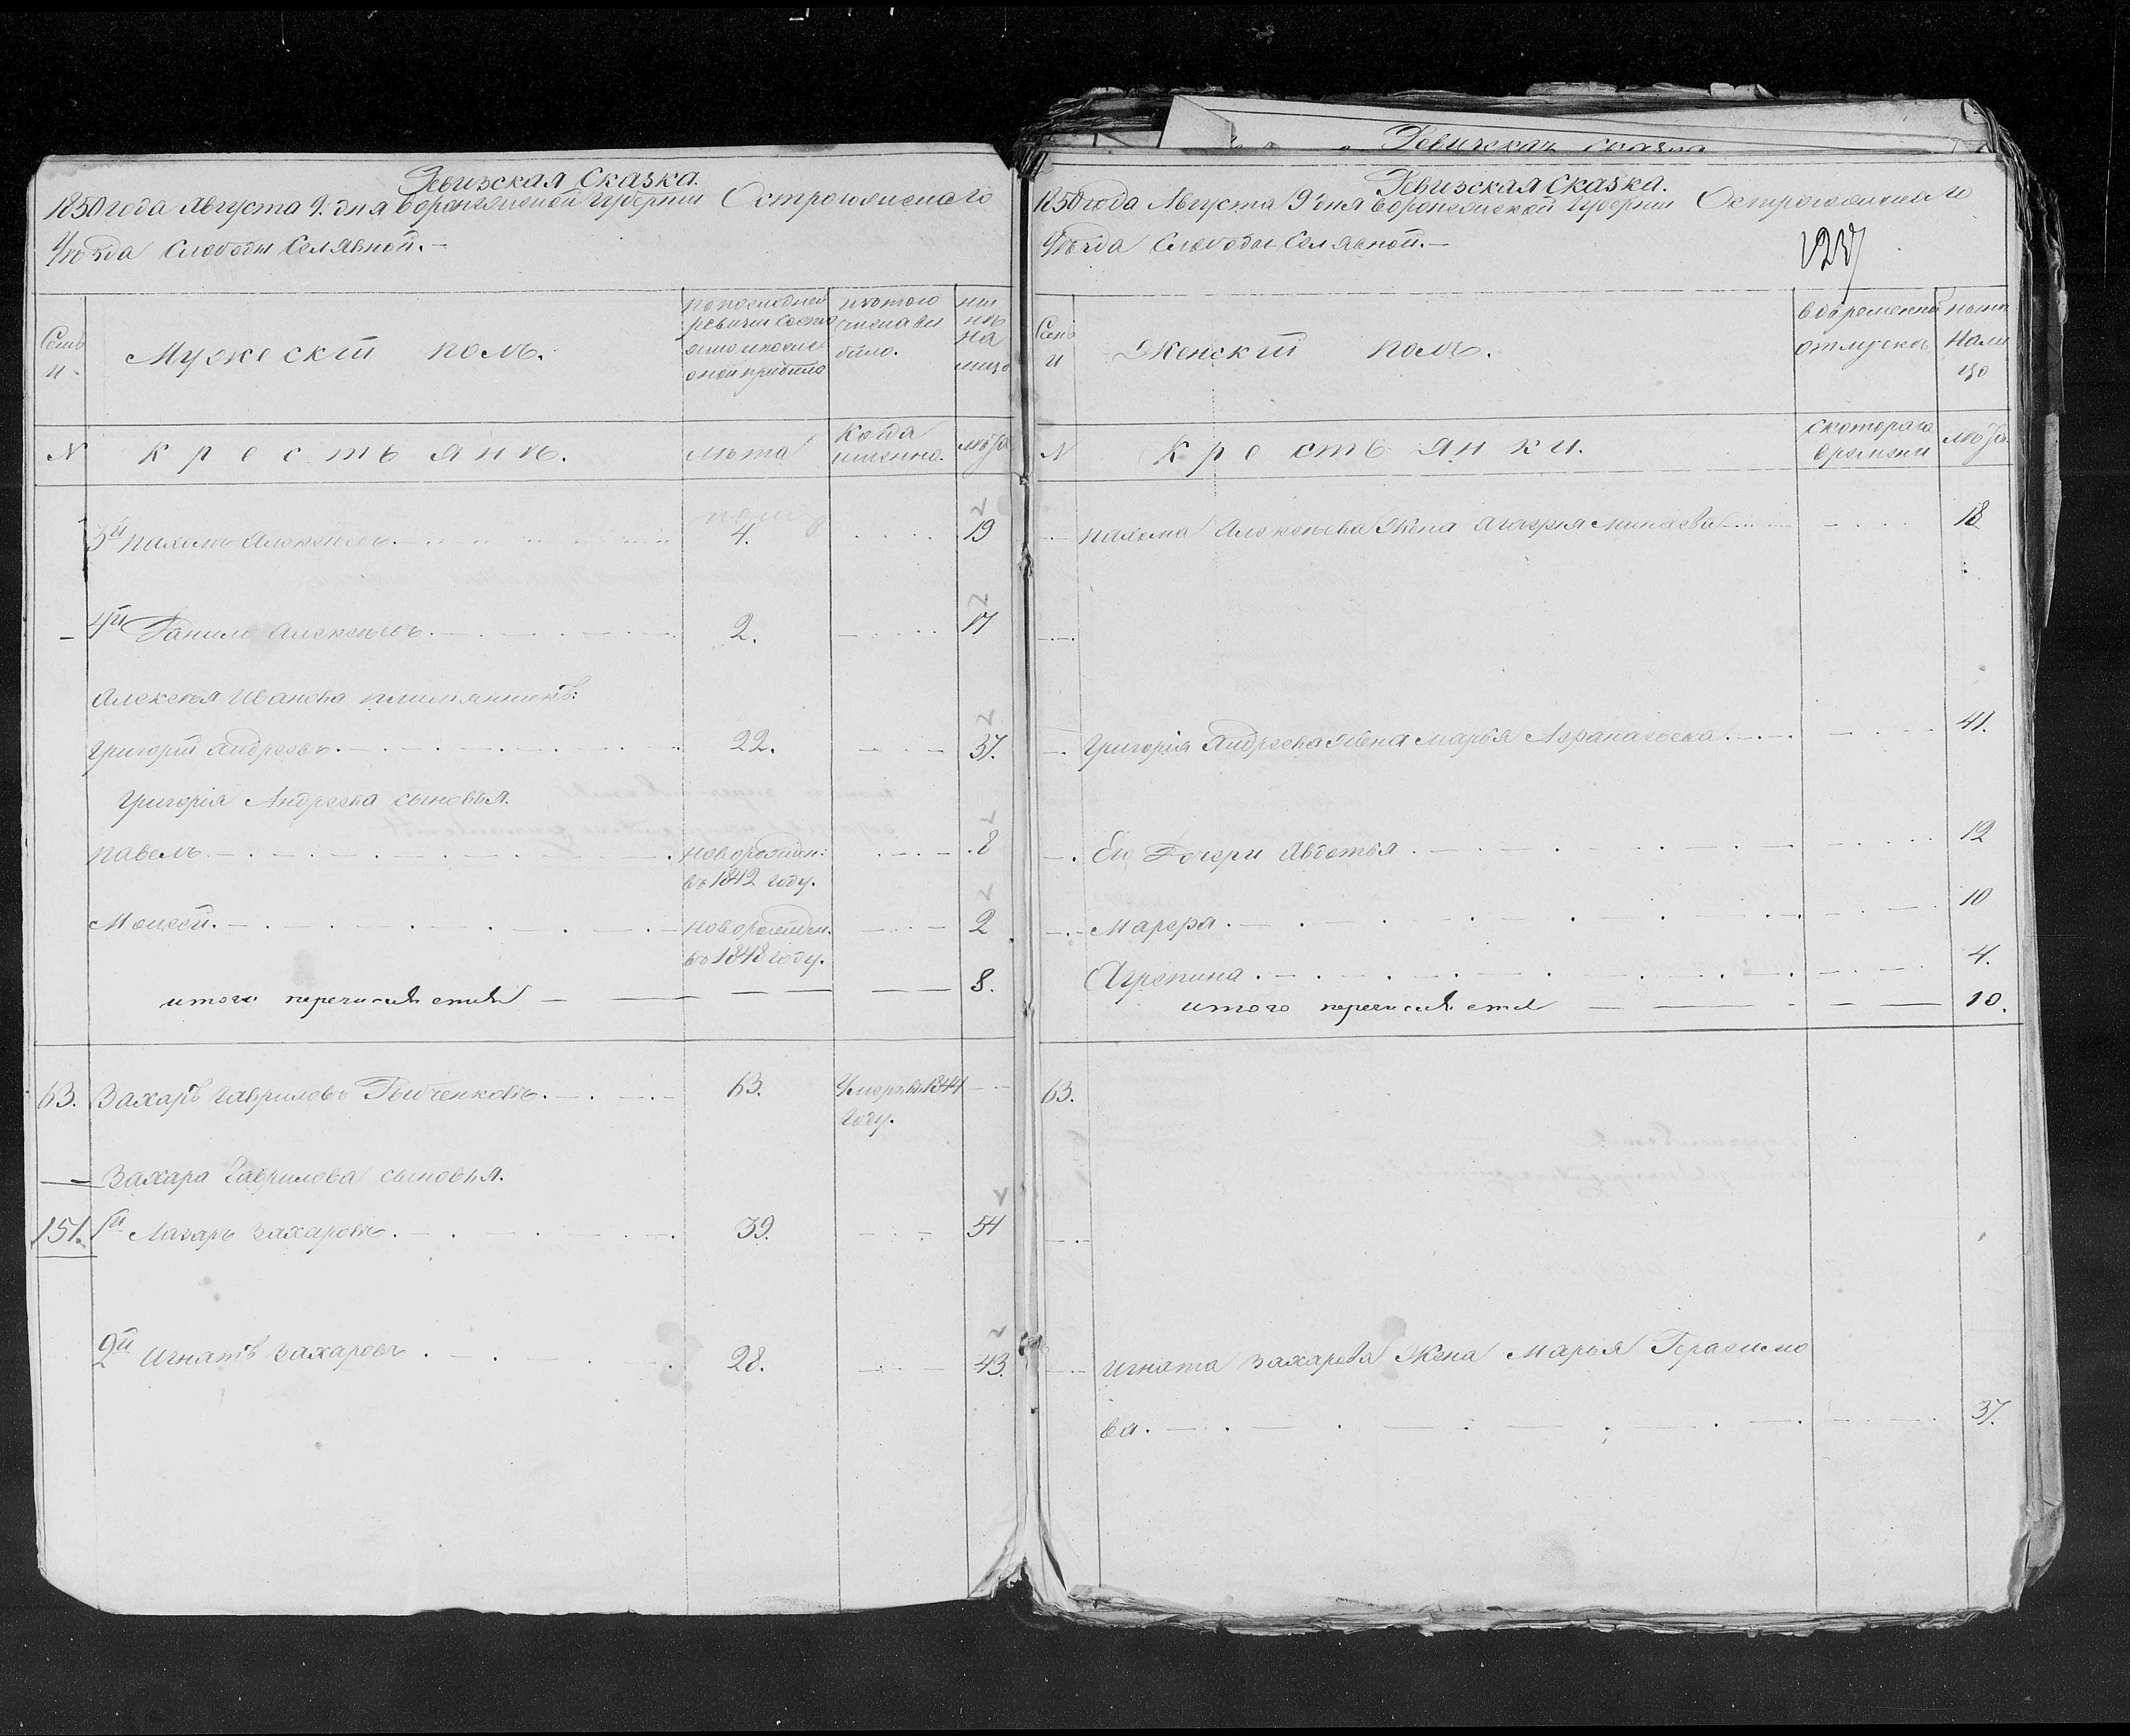 Ревизская сказка.
1850 года Августа 9. дня Воронежской Губернии Острогожскаго
Уѣзда Слободы Селявной.—
Семьи.
Мужескій полъ.
по последней ревизіи состояло и после оной прибыло
изъ того числа выбыло.
нынѣ на лицо
N
крестьянъ.
лѣта
Когда именно.
лѣта
3й Пахомъ Алексѣевъ. 4. 19
4й Данило Алексѣевъ. 2. 17
Алексѣя Иванова племянникъ:
Григорій Андреевъ. 22. 37.
Григорія Андреева сыновья.
Павелъ новорожден: 8
въ 1842 году.
Моисей. новорожден. 2
въ 1848 году.
итого перечисляется 8.
63. Захаръ Гавриловъ 63. Умеръ въ 1844
году.
Захара Гаврилова сыновья.
151. 1й Лазарь Захаровъ. 39. 54
2й Игнатъ Захаровъ. 28. 43.
Ревизская сказка
Ревизская сказка.
1850 года Августа 9 дня Воронежской Губернии Острогожскаго
Уѣзда Слободы Селявной.—
1237
Семьи
Женскій полъ.
во временной отлучкѣ
на лицо
N
крестьянки.
съ котораго времени
лѣта.
Пахома Алексѣева жена Агафья 18
Григорія Андреева жена Марья Афанасьева 41.
Его Дочери Авдотья 12
Марфа. 10
Агрепина. 4.
итого перечисляется 10.
63.
Игната Захарова жена Марья Герасимо
ва. 37.